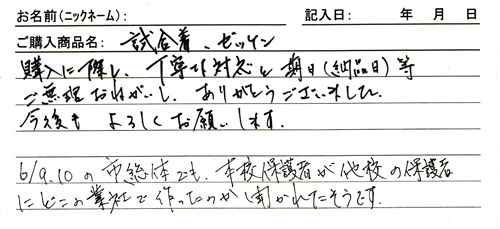 お名前(ニックネーム): 記入日: 年 月 日
ご購入商品名: 試合着、ゼッケン
購入に際し、丁寧な対応と期日(納品日)等
ご無理おねがいし、ありがとうございました。
今後も よろしくお願いします。
6/9.10の市総体でも、本校保護者が他校の保護者
にどこの業社で作ったのか聞かれたそうです。